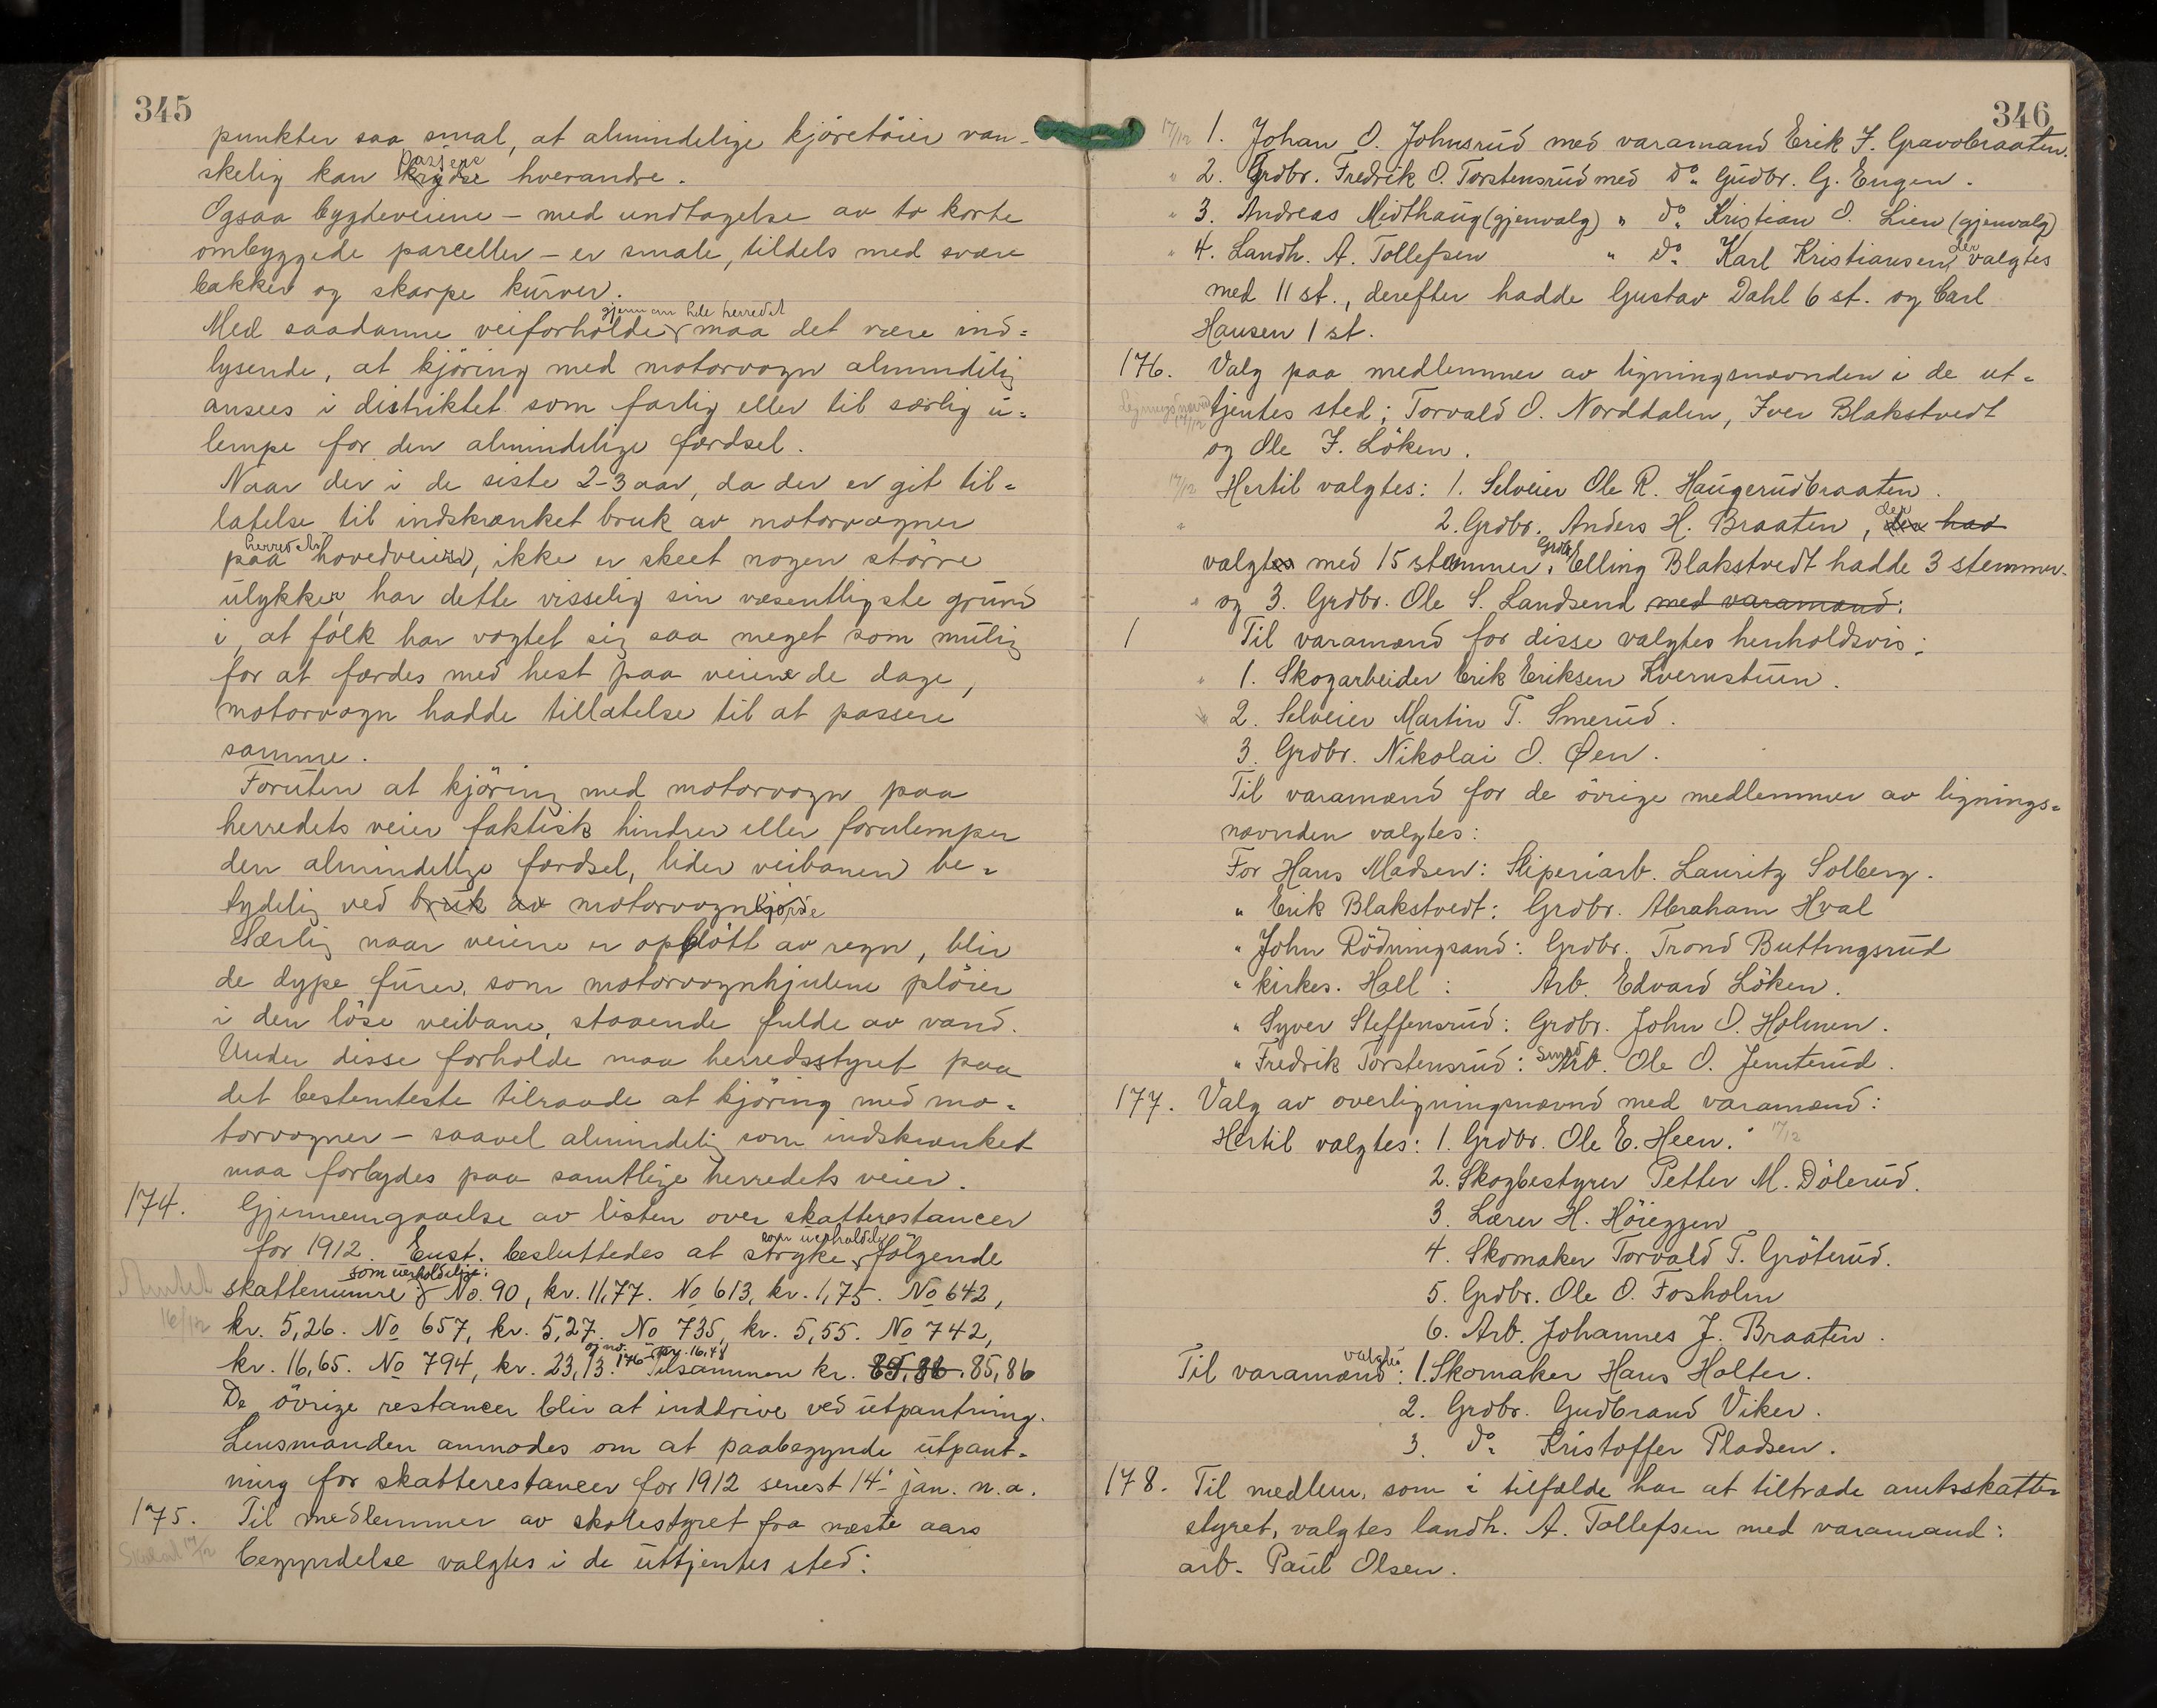 345
punkter saa smal, at almindelige kjöretöier van-
skelig kan passere hverandre.
Ogsaa bygdeveiene - med undtagelse av to korte
ombyggede parceller - er smale, tildels med svære
bakker og skarpe kurver.
Med saadanne veiforholde gjennem hele herredet maa det være ind=
lysende, at kjöring med motorvogn almindelig
ansees i distriktet som farlig eller til særlig u=
lempe for den almindelige færdsel.
Naar der i de siste 2-3 aar, da der er git til=
latelse til indskrænket bruk av motorvogner
paa herredets hovedveier, ikke er skeet nogen större
ulykker, har dette visselig sin væsentligste grund
i, at folk har vogtet sig saa meget som mulig
for at færdes med hest paa veiene de dage,
motorvogn hadde tillatelse til at passere
samme.
Foruten at kjöring med motorvogn paa
herredets veier faktisk hindrer eller forulemper
den almindelige færdsel, lider veibanen be=
tydelig ved bruk av motorvogn
Særlig naar veiene er opblött av regn, blir
de dype furer, som motorvognhjulene plöier
i den löse veibane, staaende fulde av vand.
Under disse forholde maa herredsstyret paa
det bestemteste tilraade at kjöring med mo=
torvogner - saavel almindelig som indskrænket
maa forbydes paa samtlige herredets veier.
174. Gjennemgaaelse av listen over skatterestancer
for 1912. Enst. besluttedes at stryke som uerholdelig følgende
skattenumre som uerholdelige: No. 90, kr. 11,77. No 613, kr. 1,75. No 642,
16/12 kr. 5,26. No 657, kr. 5,27. No 735, kr. 5,55. No 742,
kr. 16,65. No 794, kr. 23,13. og no. 176 kr. 16,48 Tilsammen kr. 85,86. 85,86
De övrige restancer blir at inddrive ved utpantning.
Lensmanden anmodes om at paabegynde utpant=
ning for skatterestancer for 1912 senest 14. jan. n.a.
175. Til medlemmer av skolestyret fra næste aars
17/12 begyndelse valgtes i de uttjentes sted:
346
17/12 1. Johan O. Johnsrud med varamand Erik J. Gravobraaten.
" 2. Grdbr. Fredrik O. Torstensrud med do. Gudbr. G. Engen.
" 3. Andreas Midthaug (gjenvalg) " do. Kristian O. Lien (gjenvalg)
" 4. Landh. A. Tollefsen " do. Karl Kristiansen, der valgtes
med 11 st., derefter hadde Gustav Dahl 6 st. og Carl
Hansen 1 st.
176. Valg paa medlemmer av ligningsnævnden i de ut=
17/12 tjentes sted: Torvald O. Norddalen, Iver Blakstvedt
og Ole J. Löken.
17/12 Hertil valgtes: 1. Selveier Ole R. Haugerudbraaten.
" 2. Grdbr. Anders H. Braaten, der had
valgtes med 15 stemmer. Grdbr. Elling Blakstvedt hadde 3 stemmer.
" og 3. Grdbr. Ole S. Landsend med varamænd:
1 Til varamænd for disse valgtes henholdsvis:
" 1. Skogarbeider Erik Eriksen Kvernstuen.
" 2. Selveier Martin T. Smerud.
3. Grdbr. Nikolai O. Øen.
Til varamænd for de övrige medlemmer av lignings=
nævnden valgtes:
For Hans Madsen: Sliperiarb. Lauritz Solberg.
" Erik Blakstvedt: Grdbr. Abraham Hval
" John Rödningsand: Grdbr. Trond Buttingsrud
" kirkes. Hall: Arb. Edvard Löken.
" Syver Steffensrud: Grdbr. John O. Holmen.
" Fredrik Torstensrud: smed Arb. Ole O. Jemterud.
177. Valg av overligningsnævnd med varamænd:
Hertil valgtes: 1. Grdbr. Ole E. Heen. 17/12
2. Skogbestyrer Petter M. Dölerud.
3. Lærer H. Höieggen
4. Skomaker Torvald T. Gröterud.
5. Grdbr. Ole O. Fosholm
6. Arb. Johannes J. Braaten.
Til varamænd valgtes: 1. Skomaker Hans Holter.
2. Grdbr. Gudbrand Viker.
3. do. Kristoffer Pladsen.
178. Til medlem, som i tilfælde har at tiltræde amtsskatte=
styret, valgtes landh. A. Tollefsen med varamand:
arb. Paul Olsen.